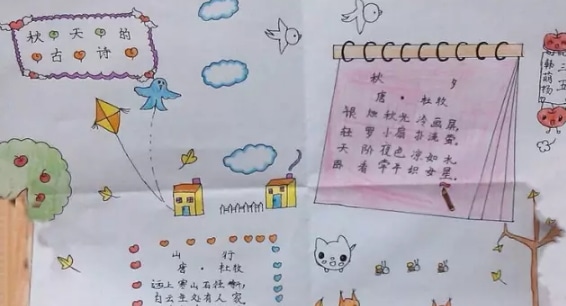 秋天的
古诗
秋 夕
唐·杜牧
银烛秋光冷画屏,
轻罗小扇扑流萤。
天阶夜色凉如水,
卧看牵牛织女星。
三五
韩萌杨
山 行
唐·杜牧
远上寒山石径斜,
白云生处有人家